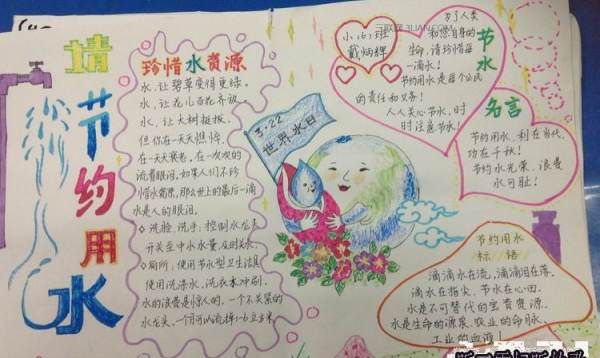 请
节
约
用
水
珍惜水资源
水，让碧草变得更绿。
水，让花儿百花齐放。
水，让大树挺拔。
但你在一天天憔悴，
在一天天衰老，在一次次的
流着眼泪，如果人们不珍
惜水资源，那么世上的最后一滴
水是人的眼泪。
洗脸、洗手，控制水龙头
开关至中小水量，及时关水。
厕所，使用节水型卫生洁具
使用洗涤水、洗衣水冲刷。
水的浪费是惊人的，一个不关紧的
3·22
世界水日
小161班
戴炳辉
为了人类
和您自身的
生命，请珍惜每
一滴水！
节约用水是每个公民
的责任和义务！
人人关心节水，时
时注意节水！
节水
名言
节约用水，利在当代，
功在千秋！
节约用水光荣，浪费
水可耻！
节约用水
标语
滴滴水在流，滴滴泪在落。
滴水在指尖，节水在心田。
水是不可替代的宝贵资源。
水是生命的源泉、农业的命脉、
工业的血液！